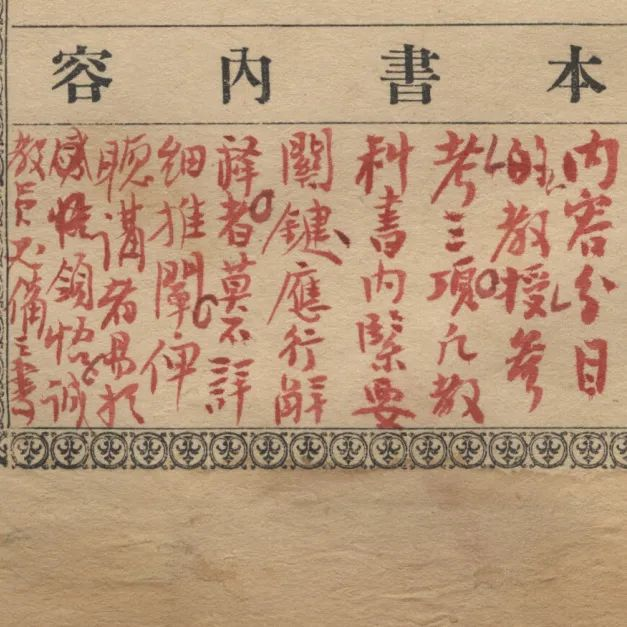 本書內容
内容分目
的教授參
考三項凡教
科書内緊要
關鍵應行解
釋者莫不詳
細推闡俾
聽講者易於
感悟領悟誠
教員必備之書